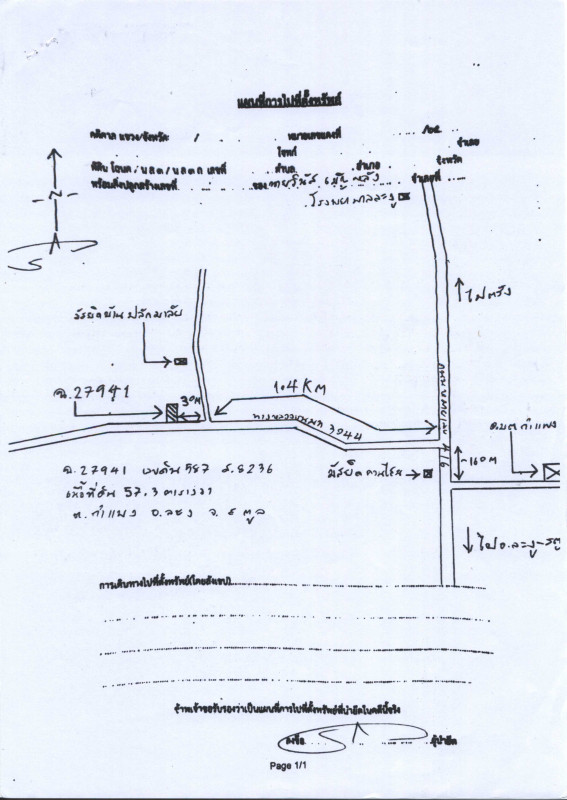 แผนที่การไปที่ตั้งทรัพย์
คดีศาล แขวง/จังหวัด / หมายเลขแดงที่ /๒๕
โจทก์ จำเลย
ที่ดิน โฉนด / นส๓ / นส๓ก เลขที่ ตำบล อำเภอ จังหวัด
พร้อมสิ่งปลูกสร้างเลขที่ ของ จำเลยที่
โรงพยาบาลละงู
N
ไปตรัง
มัสยิดบ้าน
ฉ.27941
30M
1.04 KM
ทางหลวงชนบท 3044
416
160M
อบต กำแพง
มัสยิด
ฉ.27941 เลขดิน 587 ส.8236
เนื้อที่ดิน 57.3 ตารางวา
ต. กำแพง อ. ละงู จ. สตูล
ไป อ. ละงู-สตู
การเดินทางไปที่ตั้งทรัพย์(โดยสังเขป)
ข้าพเจ้าขอรับรองว่าเป็นแผนที่การไปที่ตั้งทรัพย์ที่นำยึดในคดีนี้จริง
ลงชื่อ ผู้นำยึด
Page 1/1